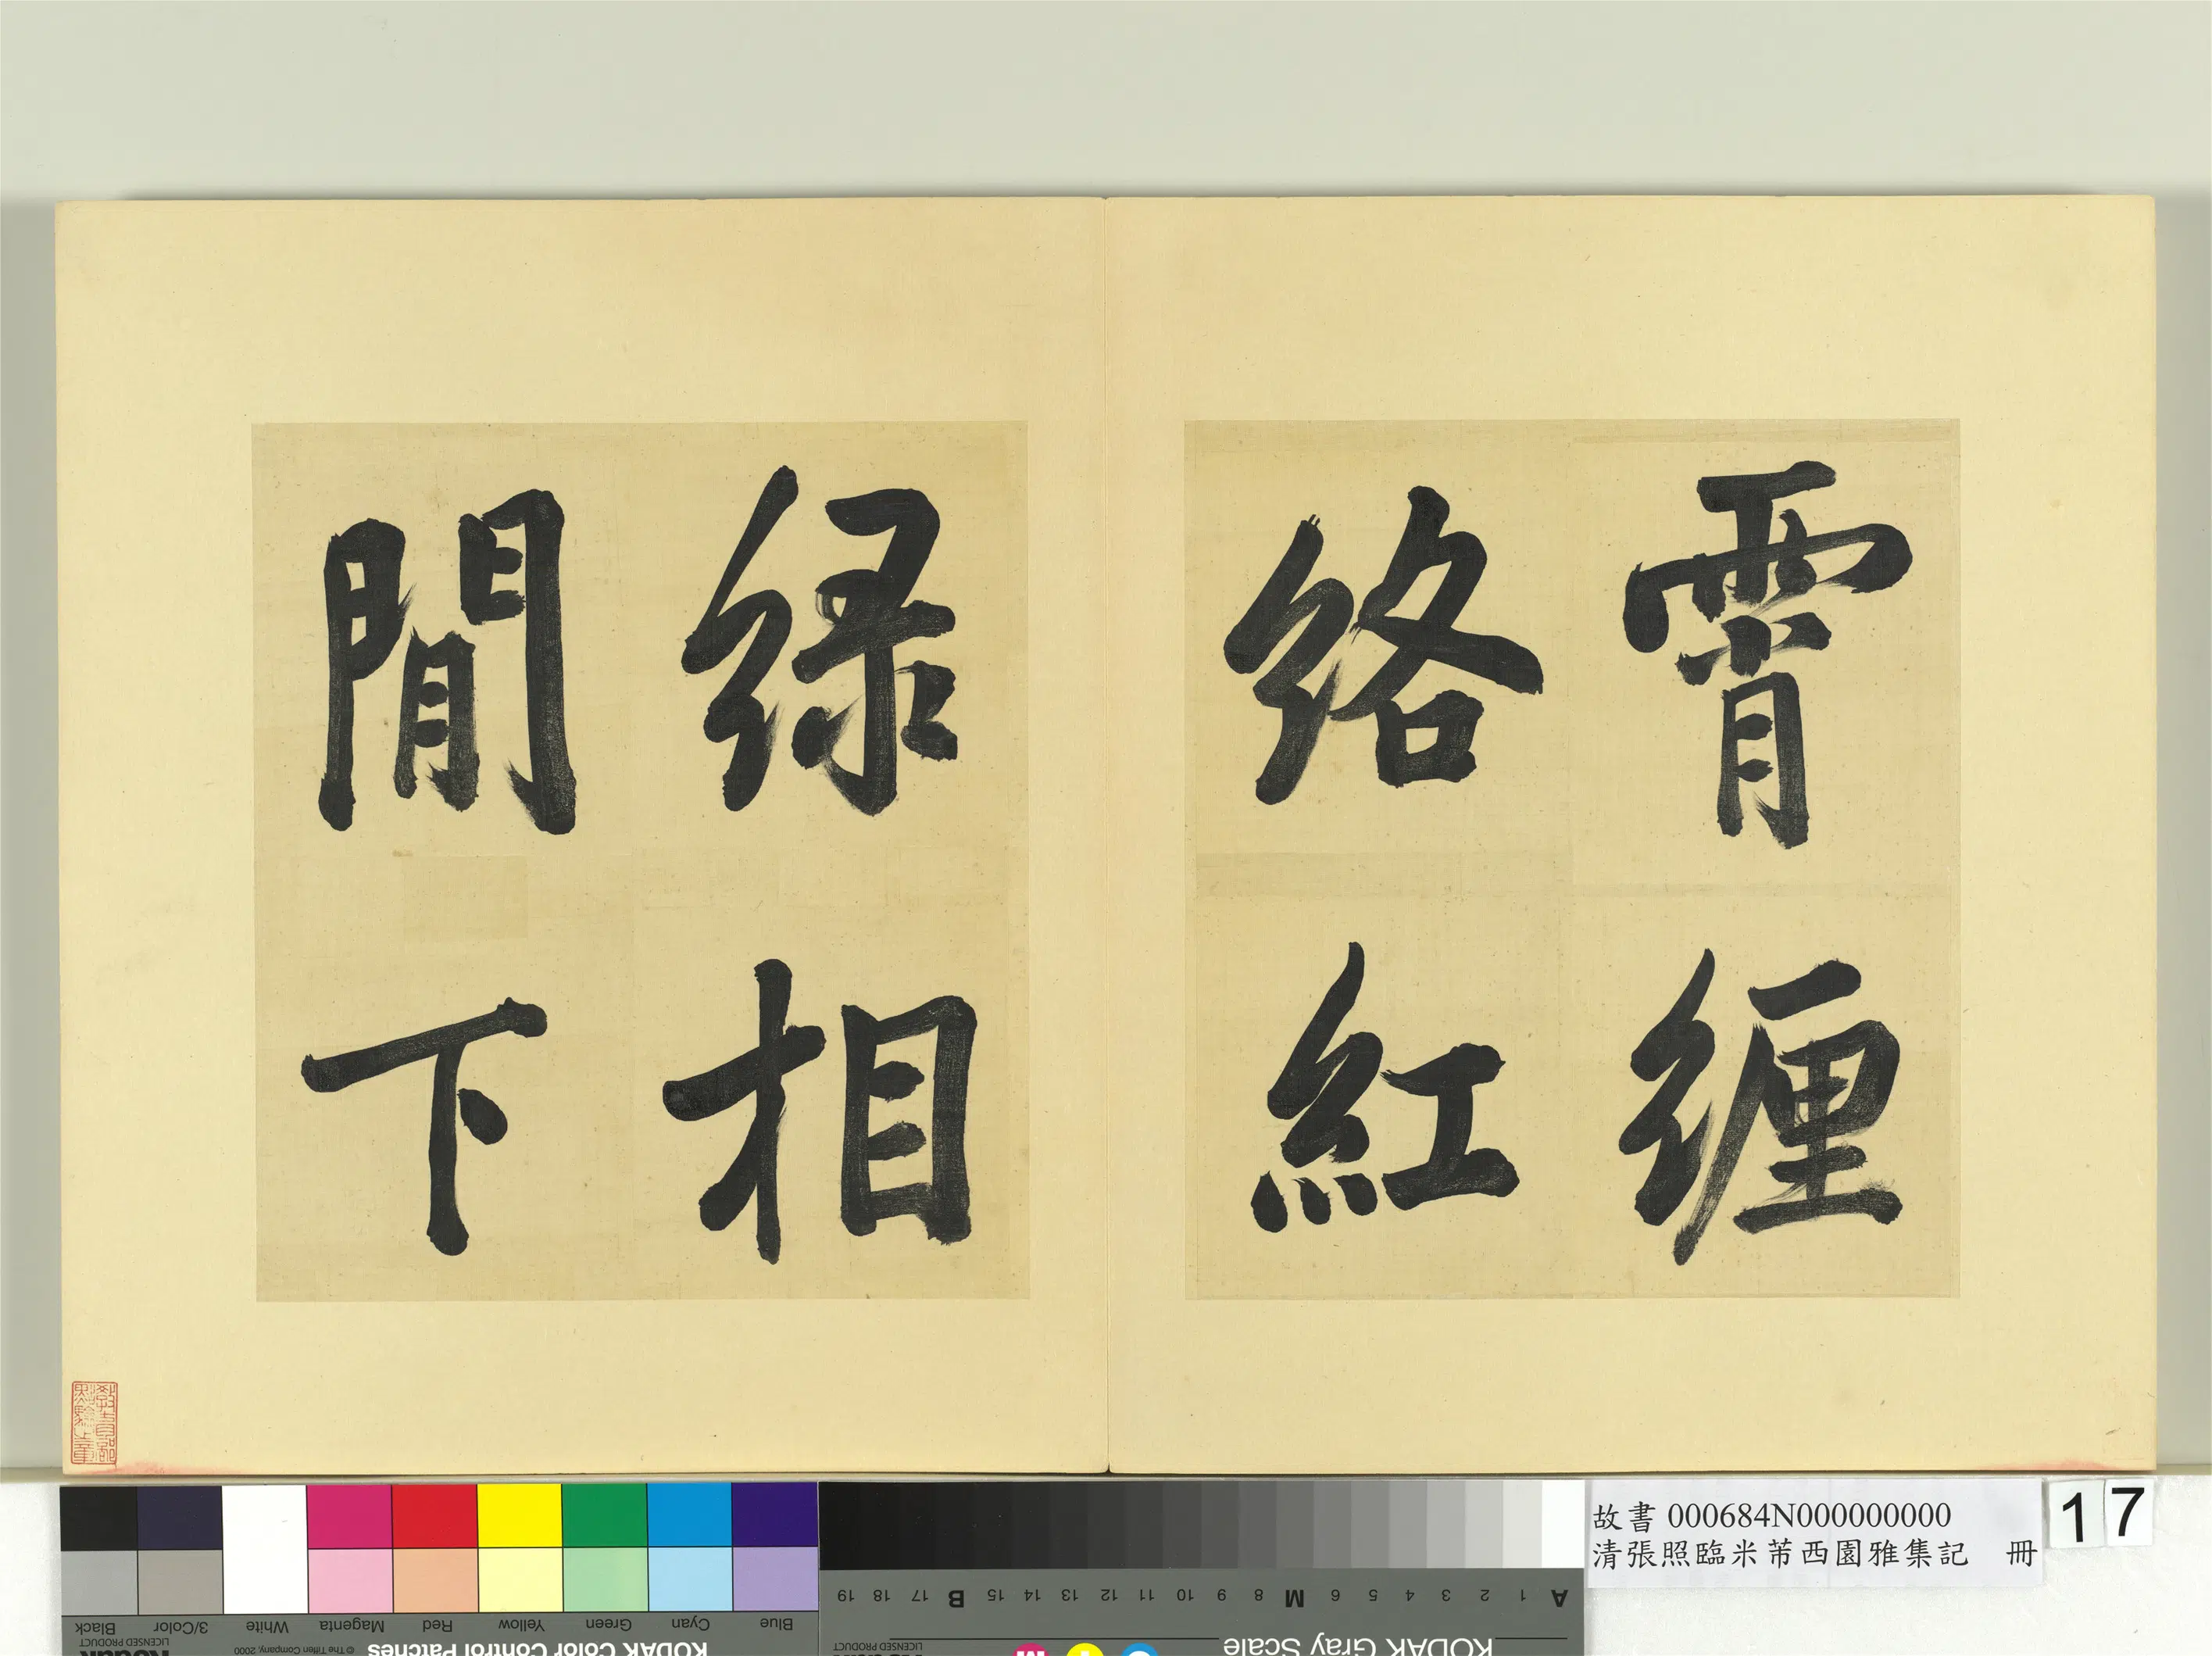 霄纏
絡紅
緑相
閒下
教育部
點驗之章
故書 000684N000000000
清張照臨米芾西園雅集記 冊
17
Black
3/Color
White
Magenta
Red
Yellow
Green
Cyan
Blue
LICENSED PRODUCT
Kodak
© The Tiffen Company, 2000
KODAK Color Control Patches
A 1 2 3 4 5 6 M 8 9 10 11 12 13 14 15 B 17 18 19
KODAK Gray Scale
LICENSED PRODUCT